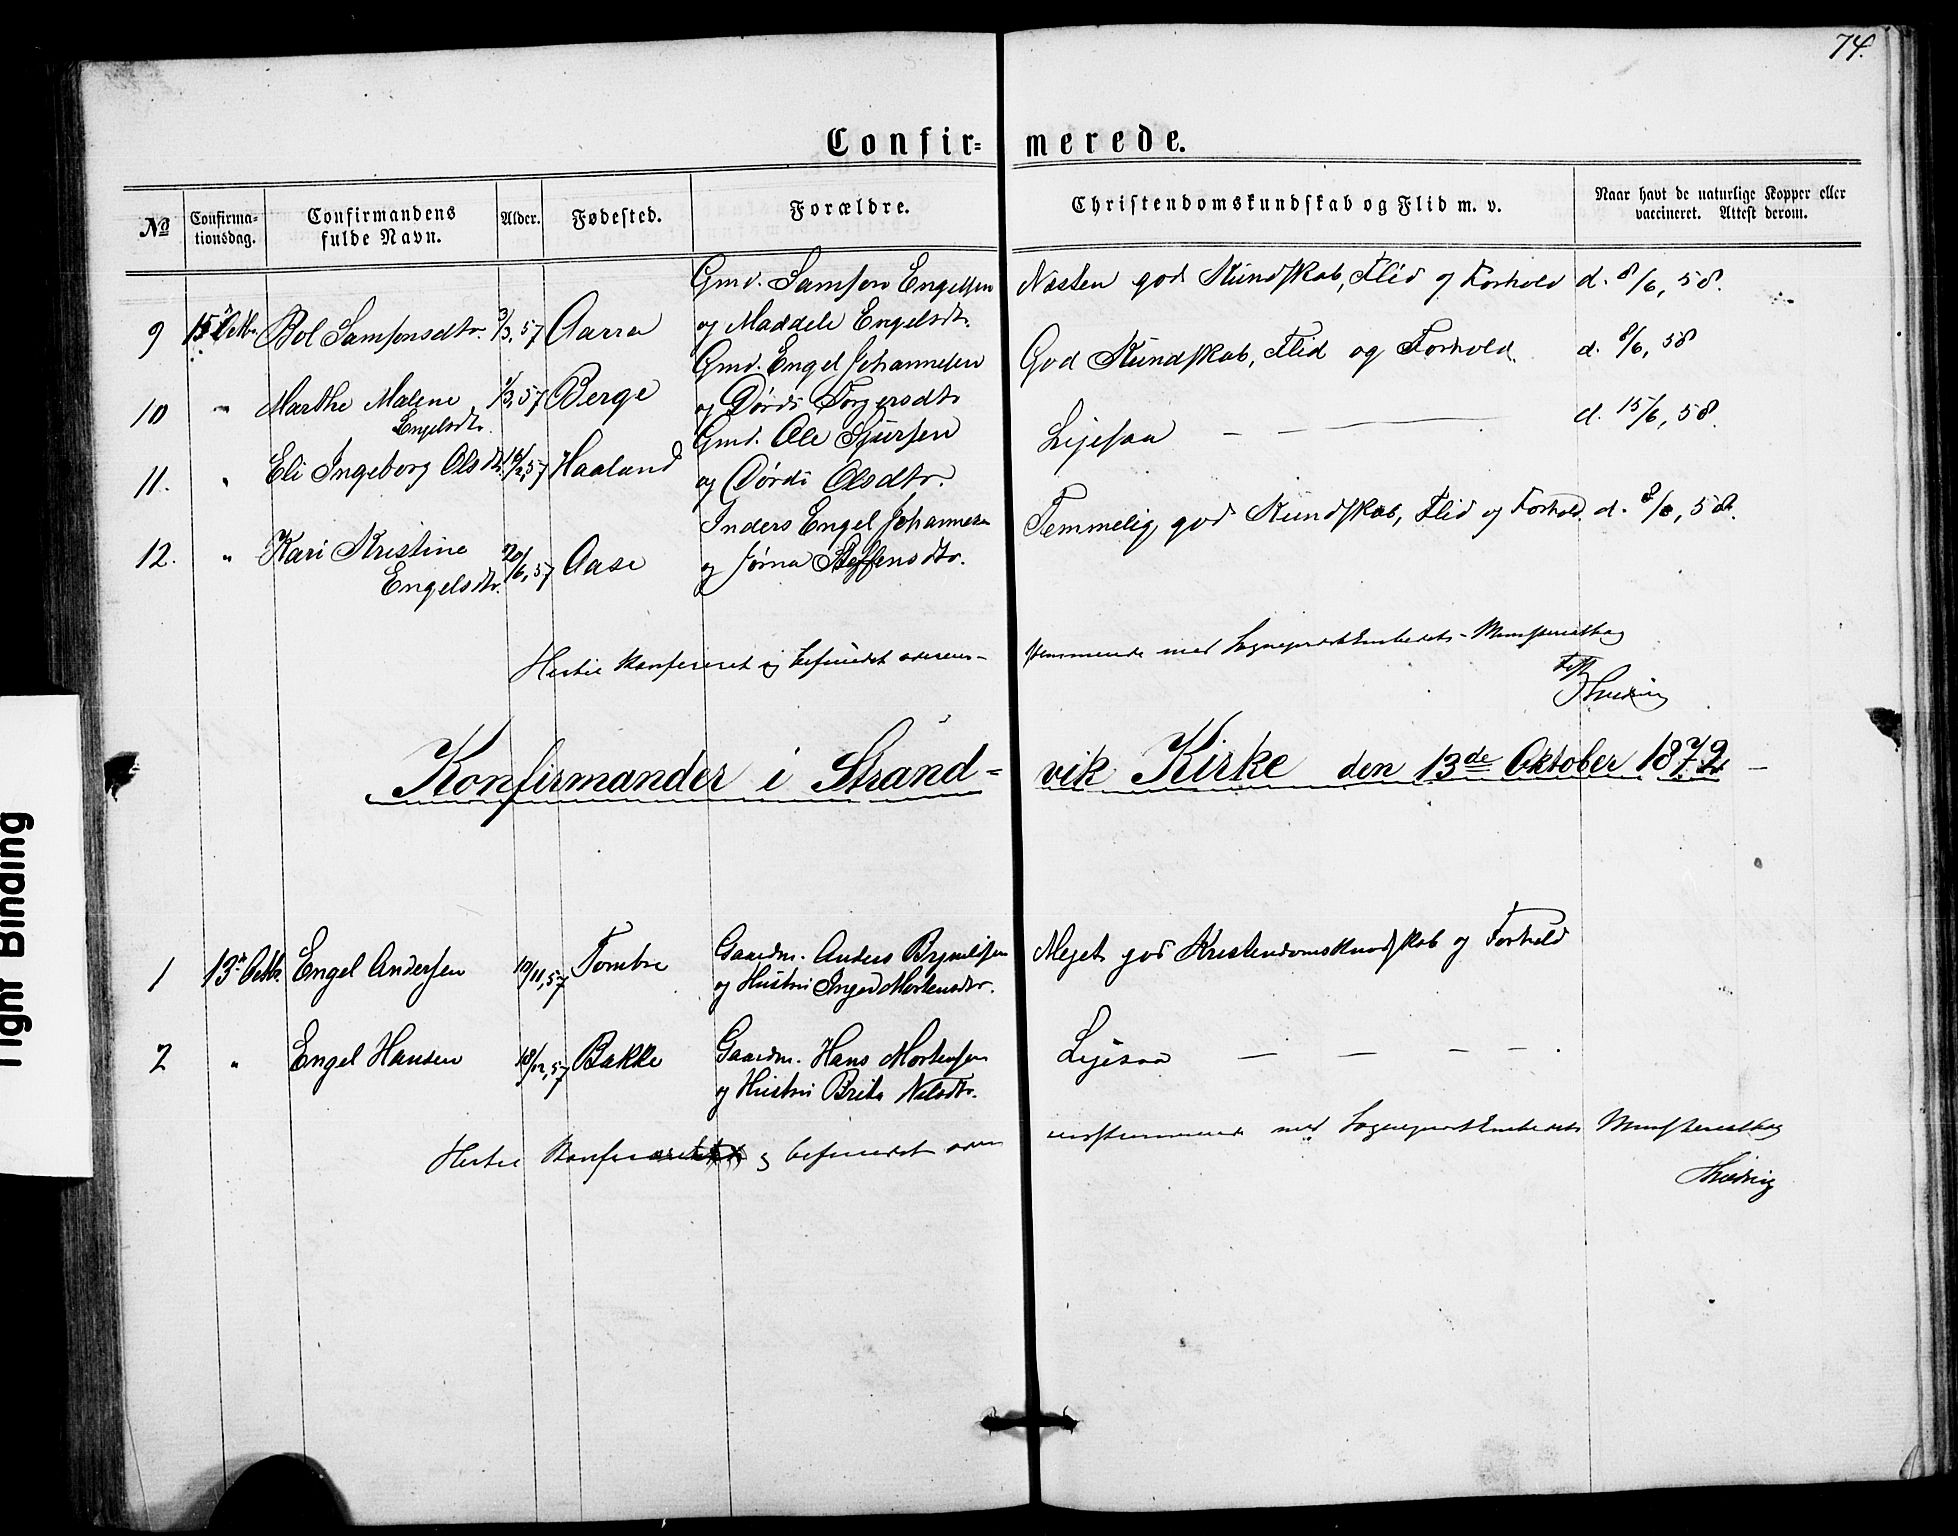 74.
Confir- merede.
No Confirma-tionsdag. Confirmandens fulde Navn. Alder. Fødested. Forældre. Christendomskundskab og Flid m. v. Naar havt de naturlige Kopper eller vaccineret. Attest derom.
Gmd. Samson Engelsen Næsten god Kundskab, Flid og Forhold d. 8/6, 58.
9 Oktbr Bol Samsonsdtr. 3/3, 57 Aarra og Maddele Engelsdtr.
Gmd. Engel Johannesen God Kundskab, Flid og Forhold. d. 8/6, 58
10 " Marthe Malene 1/3, 57 Berge og Dørdi Torgersdtr
Engelsdtr.
Gmd. Ole Sjursen Ligesaa — d. 15/6, 58.
11. " Eli Ingeborg Olsdtr. Haaland og Dørdi Olsdtr.
Inders Engel Johannesen Temmelig god Kundskab, Flid og Forhold. d. 8/6, 58.
12. " Kari Kristine 20/6, 57 Aase og Jørna Steffensdtr.
Engelsdtr.
Hertil konfereret og befundet overens-stemmende med Sogneprestembedets-Ministerialbog
Konfirmander i Strand-vik Kirke den 13de Oktober 1872 —
1 13de Oktbr. Engel Andersen 10/11, 57 Tombre Gaardm. Anders Brynildsen Meget god Kristendomskundskab og Forhold
og Hustru Inger Mortensdtr.
2 " Engel Hansen 18/12, 57 Bakke Gaardm. Hans Mortensen Ligesaa — — — —.
og Hustru Brita Nilsdtr.
Hertil konfereret og befundet overensstemmende med Sogneprestembedets Ministerialbog
Tight Binding